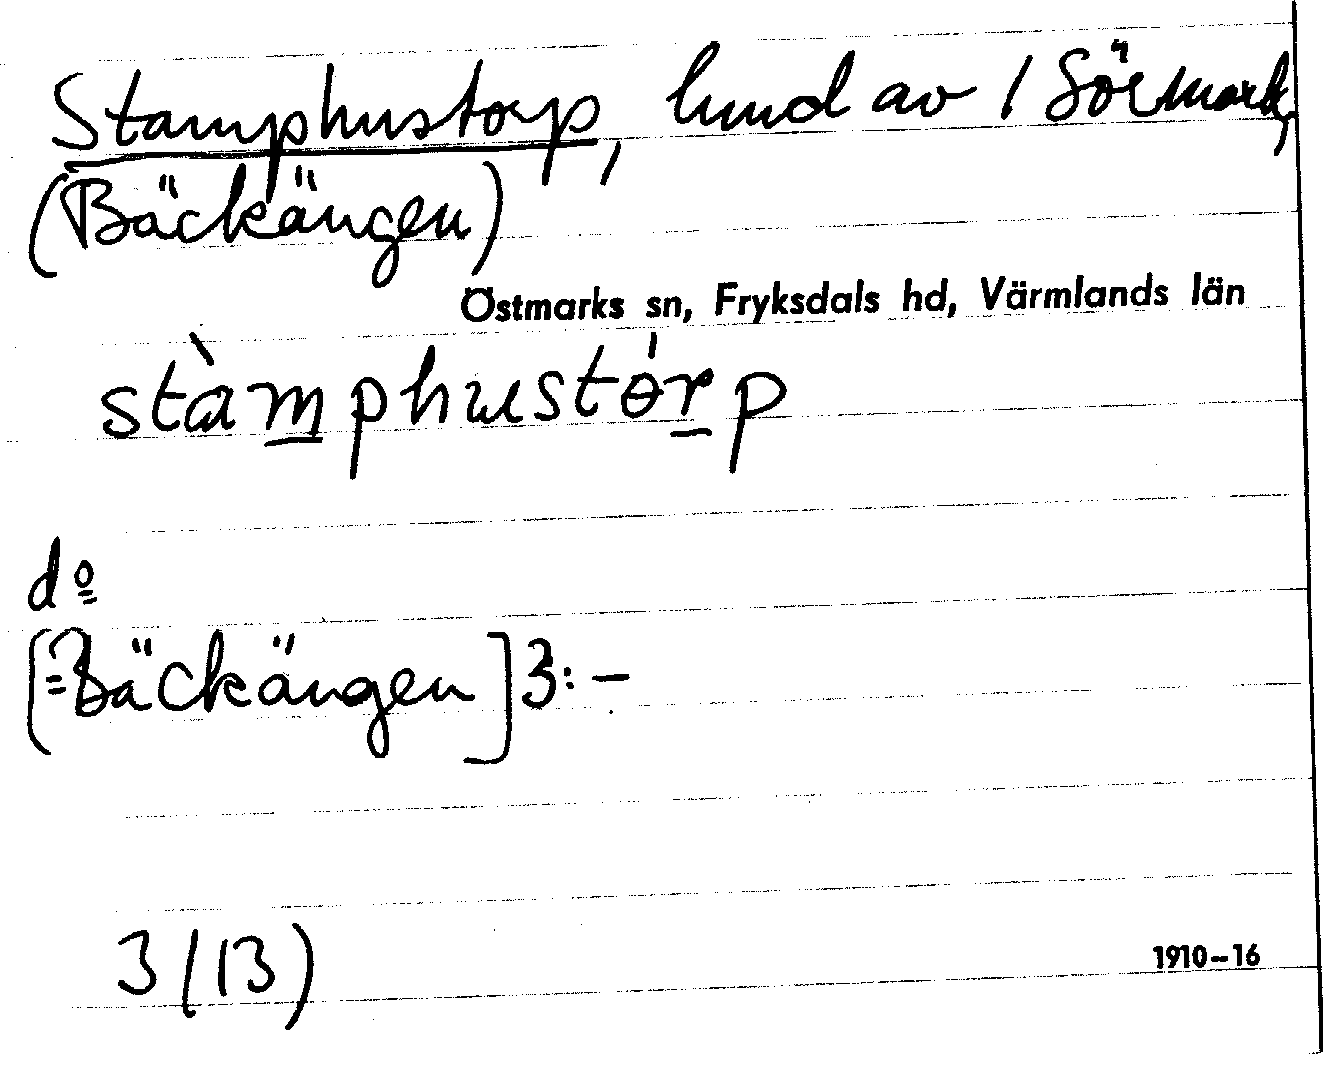 Stamphustorp, lund av 1 Sörmark,
(Bäckängen)
Östmarks sn, Fryksdals hd, Värmlands län
stàmphustórp
do
[=Bäckängen] 3:-
3/(13)
1910-16